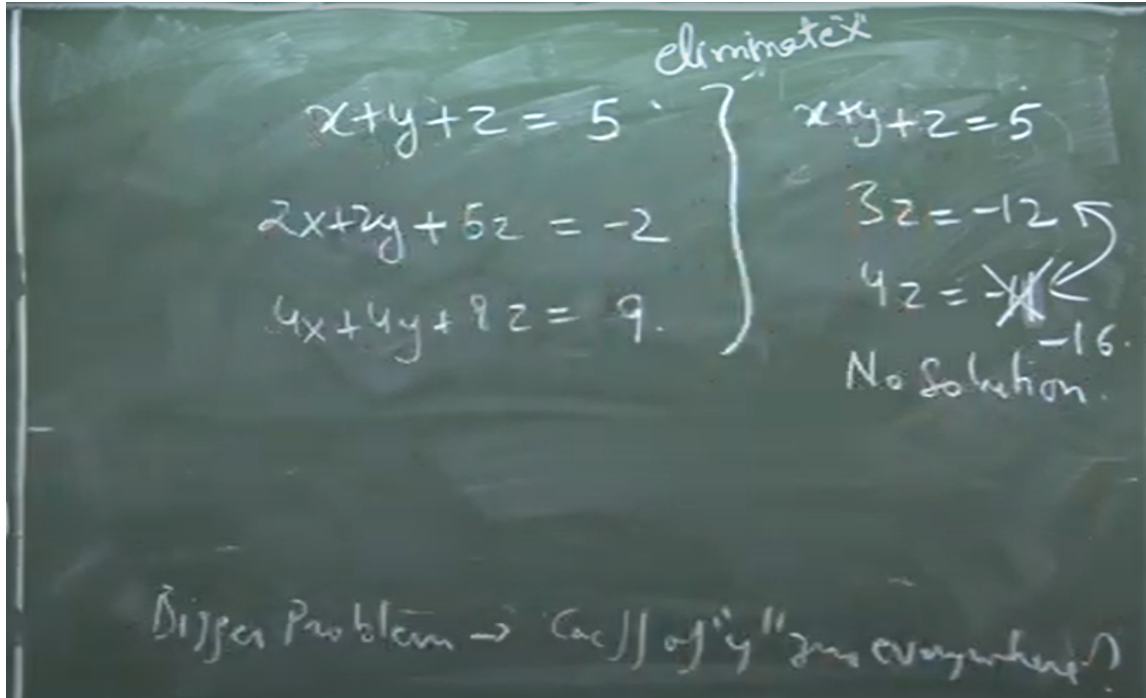 eliminate x
x+y+z = 5
2x+2y+5z = -2
4x+4y+8z = 9.
x+y+z=5
3z=-12
4z=
-16.
No Solution.
Bigger Problem → Coeff of "y" zero everywhere?